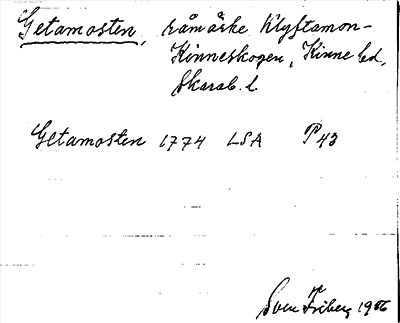 Getamosten, råmärke Klyftamon-
Kinneskogen, Kinne hd,
Skarab. l.
Getamosten 1774 LSA P 43
Sven Friberg 1966